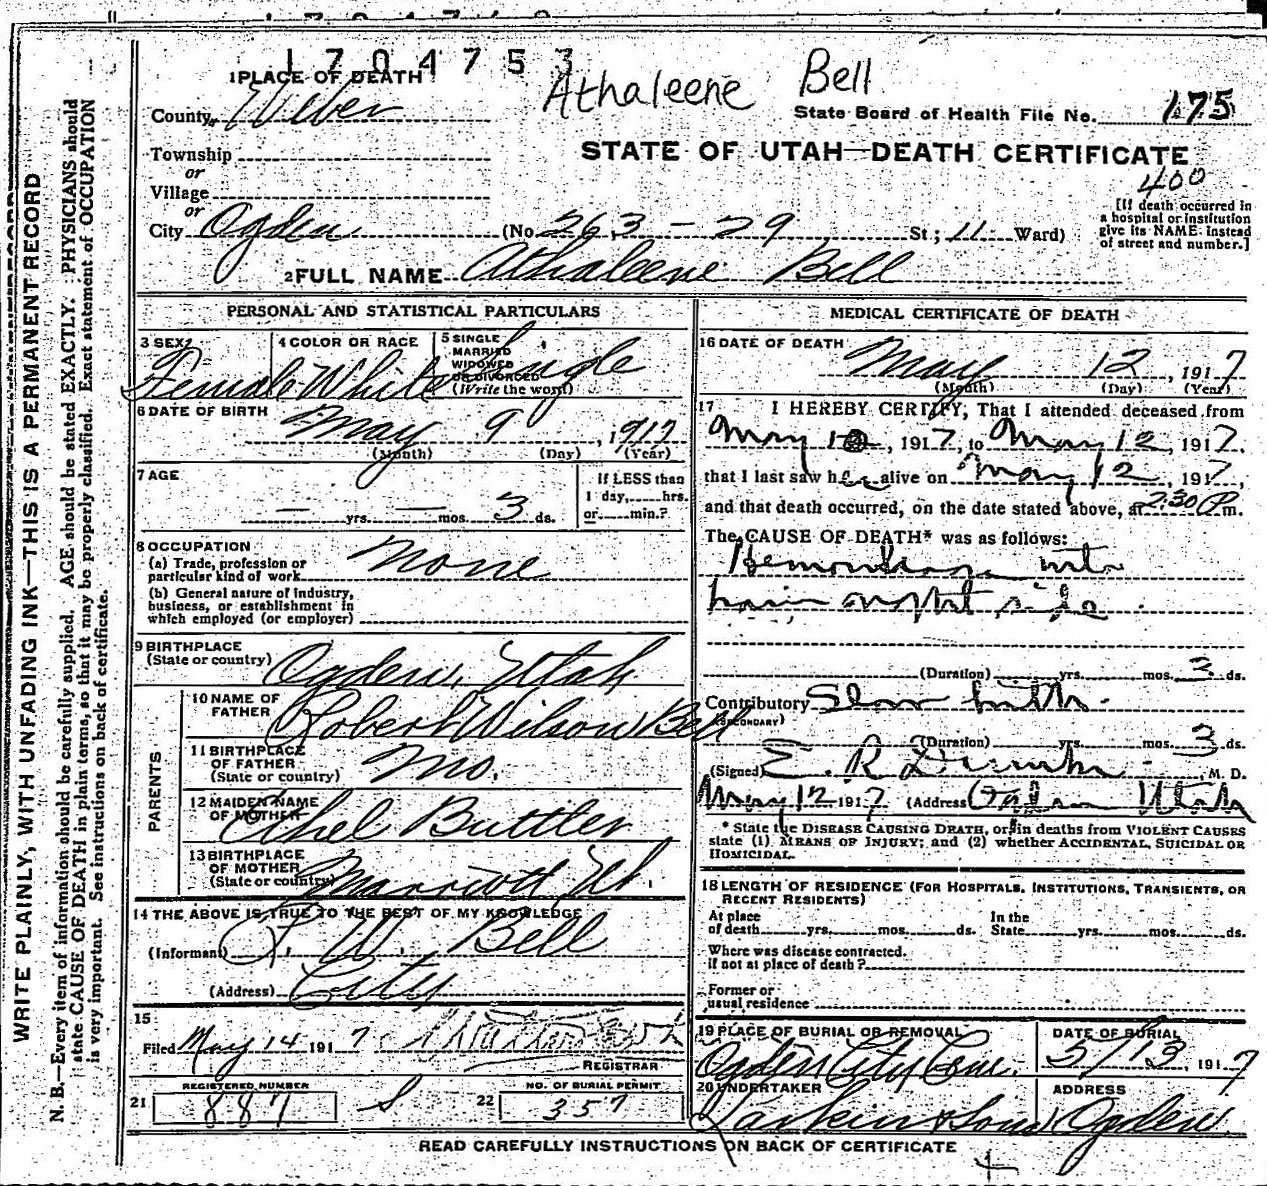 1704753
Athaleene Bell
1 PLACE OF DEATH
County Weber
State Board of Health File No. 175
Township
or
Village
or
STATE OF UTAH—DEATH CERTIFICATE
400
[If death occurred in a hospital or institution give its NAME instead of street and number.]
City Ogden (No. 263 - 29 St; 11 Ward)
2 FULL NAME Athaleene Bell
PERSONAL AND STATISTICAL PARTICULARS
3 SEX Female
4 COLOR OR RACE White
5 SINGLE MARRIED WIDOWED OR DIVORCED (Write the word) Single
6 DATE OF BIRTH
May 9, 1917
(Month) (Day) (Year)
7 AGE
— yrs. — mos. 3 ds.
If LESS than 1 day, hrs. or min.?
8 OCCUPATION
(a) Trade, profession or particular kind of work None
(b) General nature of industry, business, or establishment in which employed (or employer)
9 BIRTHPLACE
(State or country) Ogden, Utah
PARENTS
10 NAME OF FATHER Robert Wilson Bell
11 BIRTHPLACE OF FATHER (State or country) Mo.
12 MAIDEN NAME OF MOTHER Ethel Buttler
13 BIRTHPLACE OF MOTHER (State or country) Marriott Ut.
14 THE ABOVE IS TRUE TO THE BEST OF MY KNOWLEDGE
(Informant) R. W. Bell
(Address) City
15
Filed May 14 1917
REGISTRAR
REGISTERED NUMBER
21 887
NO. OF BURIAL PERMIT
22 357
MEDICAL CERTIFICATE OF DEATH
16 DATE OF DEATH
May 12, 1917
(Month) (Day) (Year)
17 I HEREBY CERTIFY, That I attended deceased from
May 10, 1917, to May 12, 1917.
that I last saw her alive on May 12, 1917,
and that death occurred, on the date stated above, at 2:30 P. m.
The CAUSE OF DEATH* was as follows:
Hemorrhage into
brain on right side.
(Duration) yrs. mos. 3 ds.
Contributory Slow birth.
(SECONDARY)
(Duration) yrs. mos. 3 ds.
(Signed) E. R. M. D.
May 12 1917 (Address) Ogden Utah
* State the DISEASE CAUSING DEATH, or, in deaths from VIOLENT CAUSES
state (1) MEANS OF INJURY; and (2) whether ACCIDENTAL, SUICIDAL OR
HOMICIDAL.
18 LENGTH OF RESIDENCE (FOR HOSPITALS, INSTITUTIONS, TRANSIENTS, OR
RECENT RESIDENTS)
At place of death yrs. mos. ds. In the State yrs. mos. ds.
Where was disease contracted.
if not at place of death?
Former or
usual residence
19 PLACE OF BURIAL OR REMOVAL
Ogden City Cem.
DATE OF BURIAL
5/13, 1917
20 UNDERTAKER
Larkin & Sons
ADDRESS
Ogden
READ CAREFULLY INSTRUCTIONS ON BACK OF CERTIFICATE
WRITE PLAINLY, WITH UNFADING INK—THIS IS A PERMANENT RECORD
N. B.—Every item of information should be carefully supplied. AGE should be stated EXACTLY. PHYSICIANS should
state CAUSE OF DEATH in plain terms, so that it may be properly classified. Exact statement of OCCUPATION
is very important. See instructions on back of certificate.